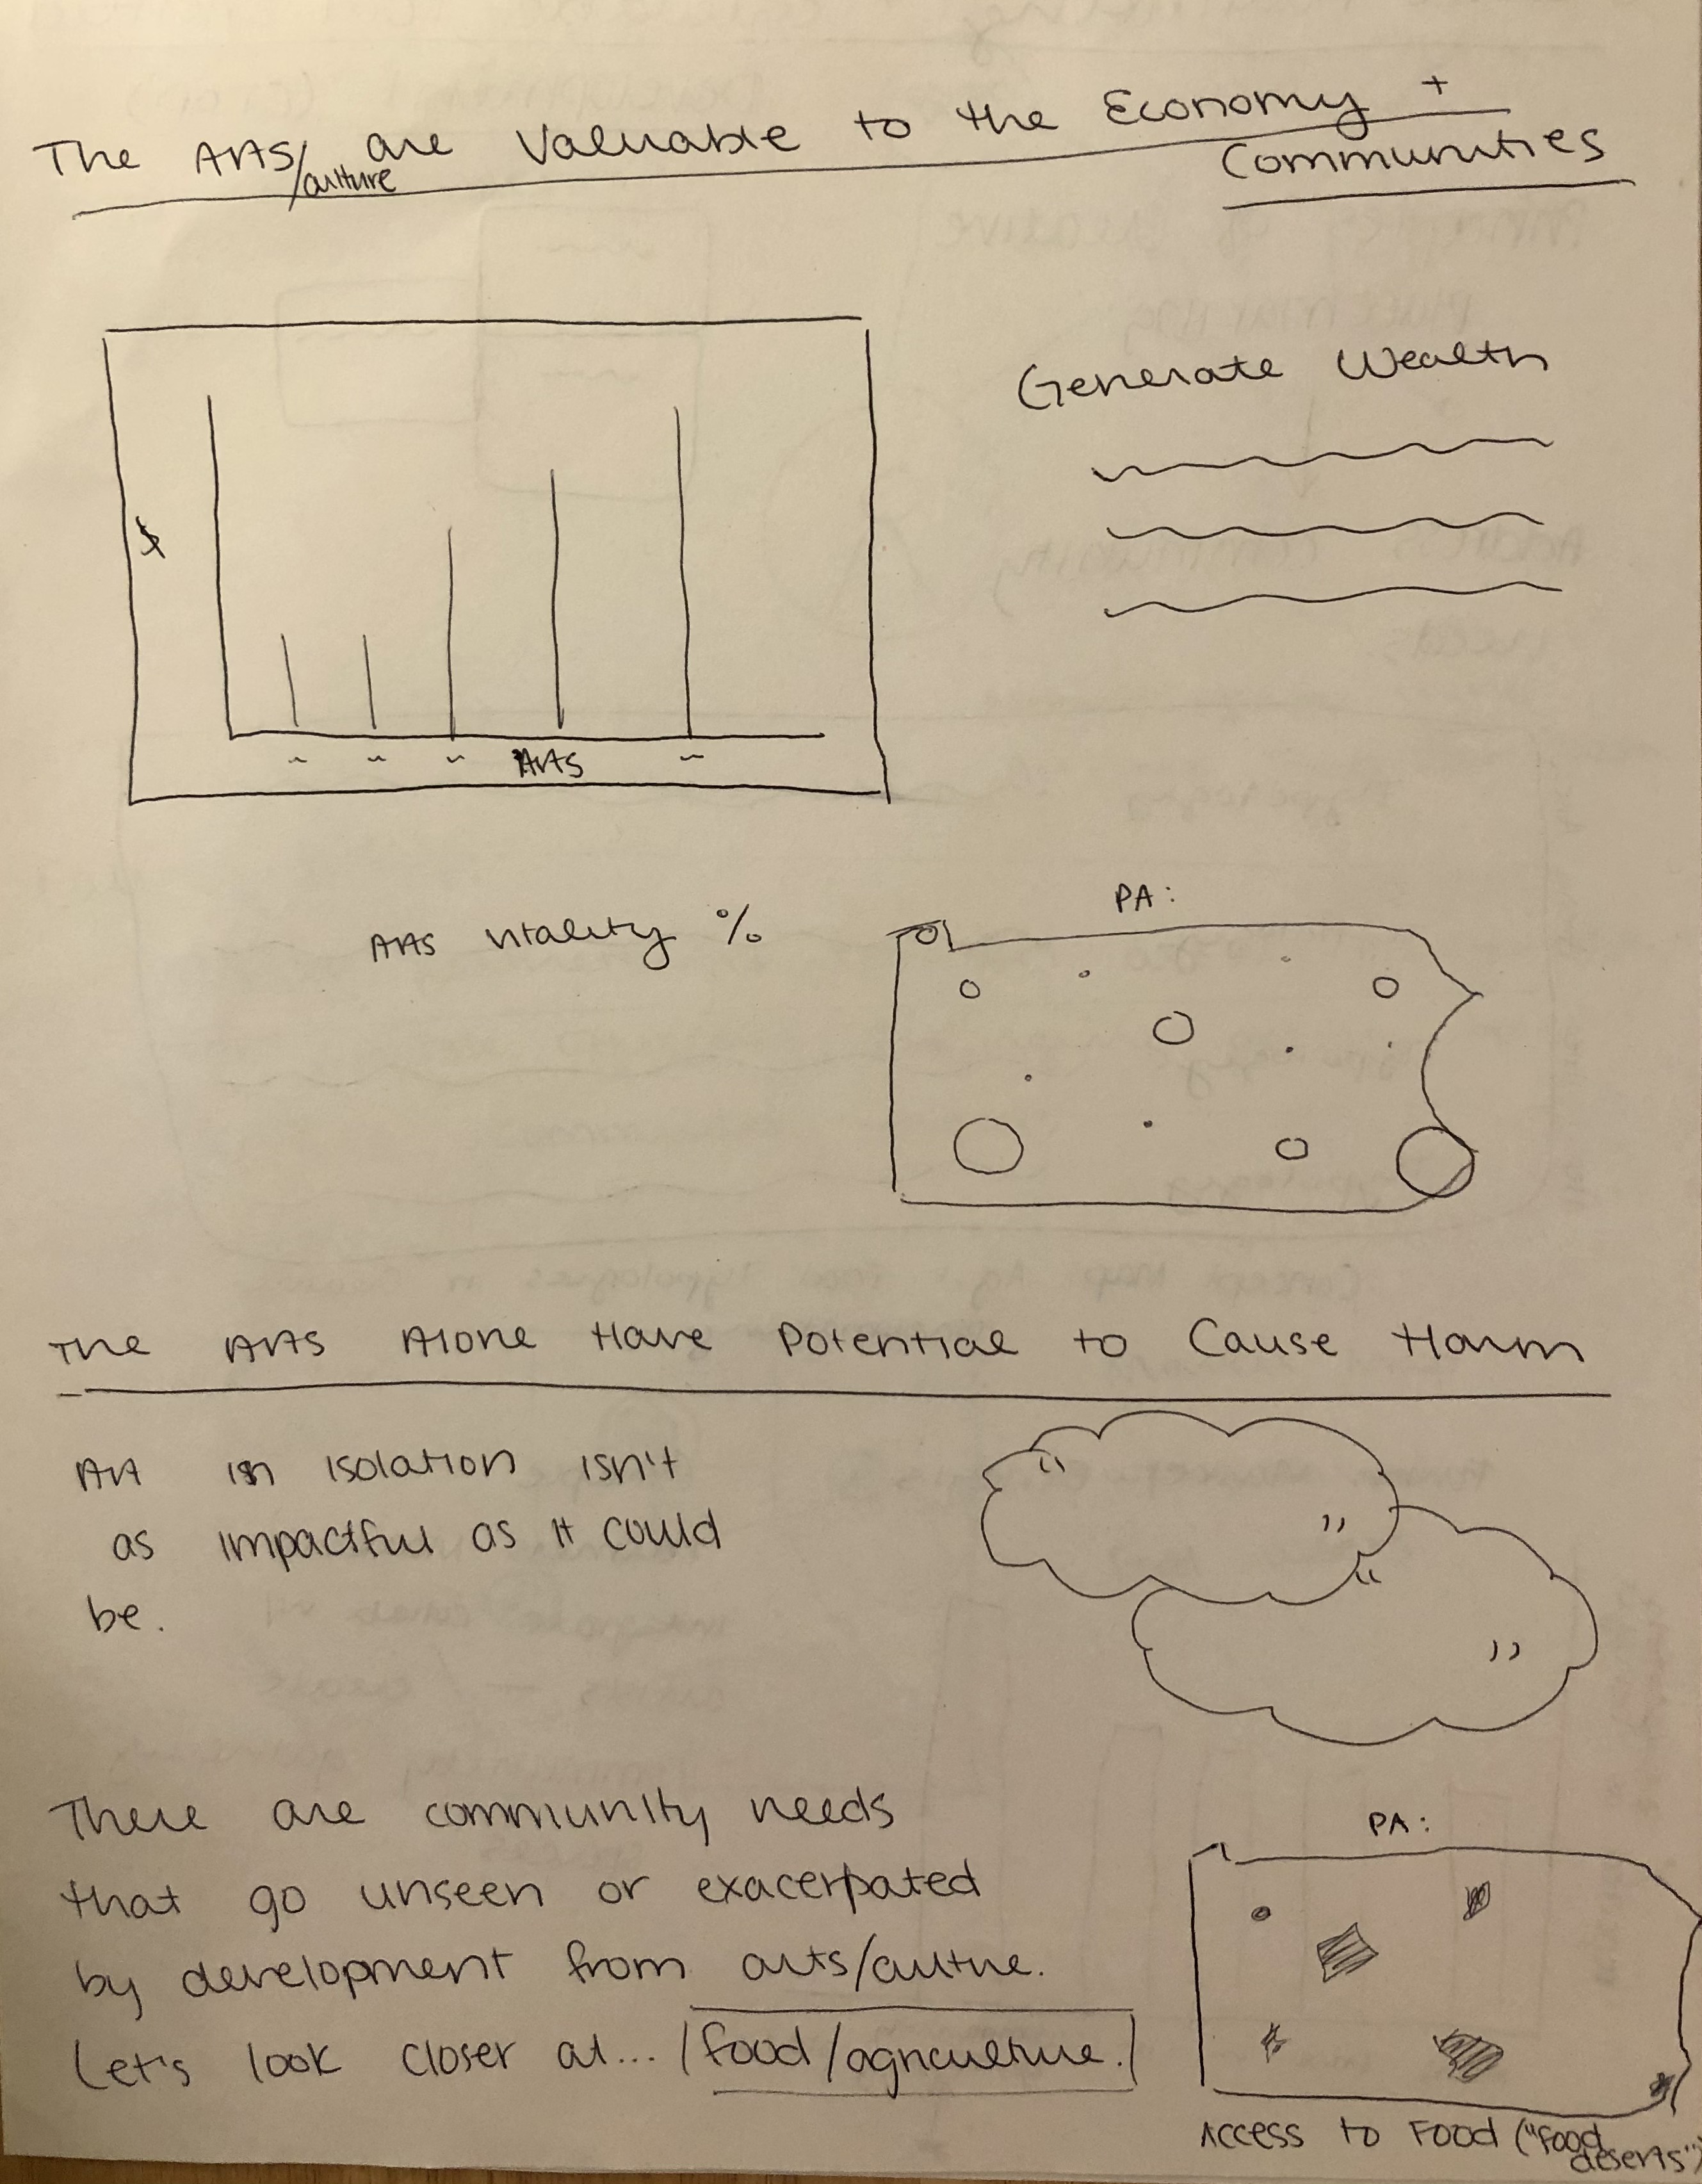 The Arts/culture are Valuable to the Economy +
Communities
Generate Wealth
$
Arts
Arts vitality %
PA:
The Arts Alone Have Potential to Cause Harm
Art in isolation isn't
as impactful as it could
be.
“ ”
“ ”
There are community needs
that go unseen or exacerpated
by development from arts/culture.
Let's look closer at... food/agriculture.
PA:
Access to Food ("food
deserts")